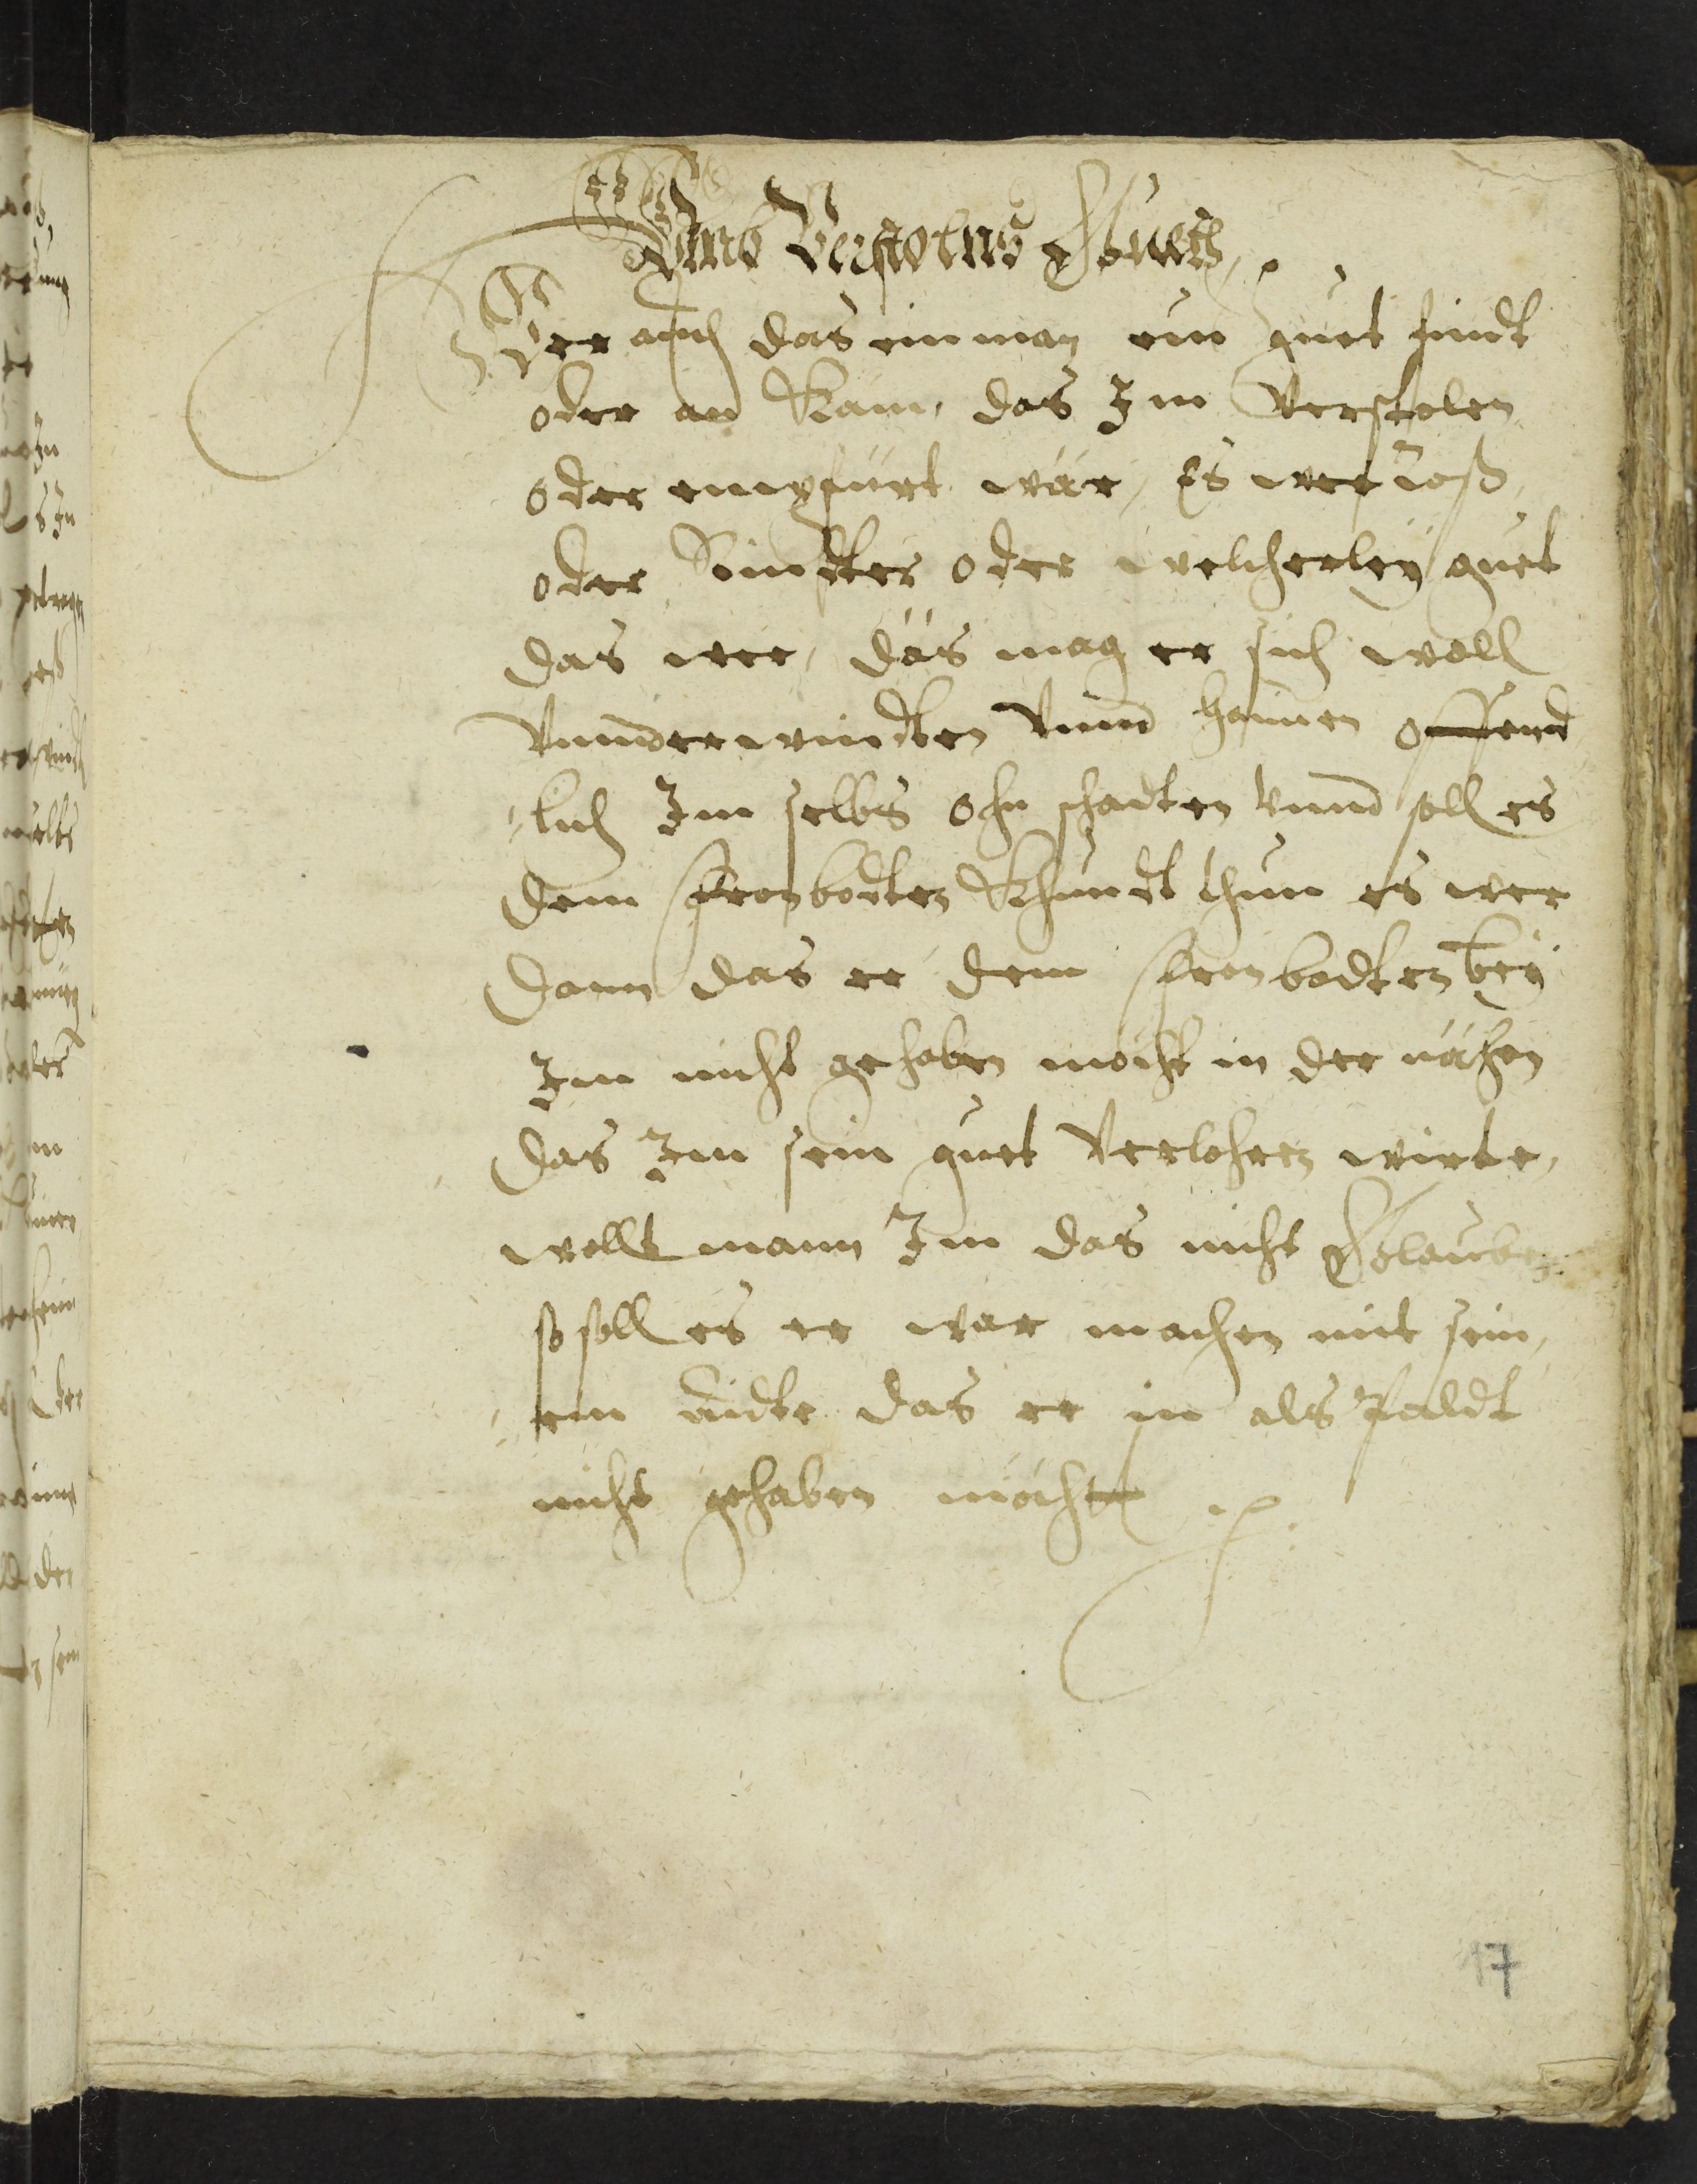 Vmb Verstolns Guett,
Wer auch das ein man ein guet findt
oder an Kam, das Im Verstolen
oder empfürt wär, Es wer roß
oder Rindter oder welcherley guet
das wer, das mag er sich woll
Vnnderwindten Vnnd haimen offent
lich Im selbs ohn schadten Vnnd soll es
dem fronbodten Khundt thun es wer
Dann das er dem fronbodten bey
Im nicht gehaben möcht in der nähen
Das Im sein guet Verlohren wirte,
wollt mann Im das nicht Glauben
so soll es er war machen mit sein
em aidte das er in als paldt
nicht gehaben möcht
17